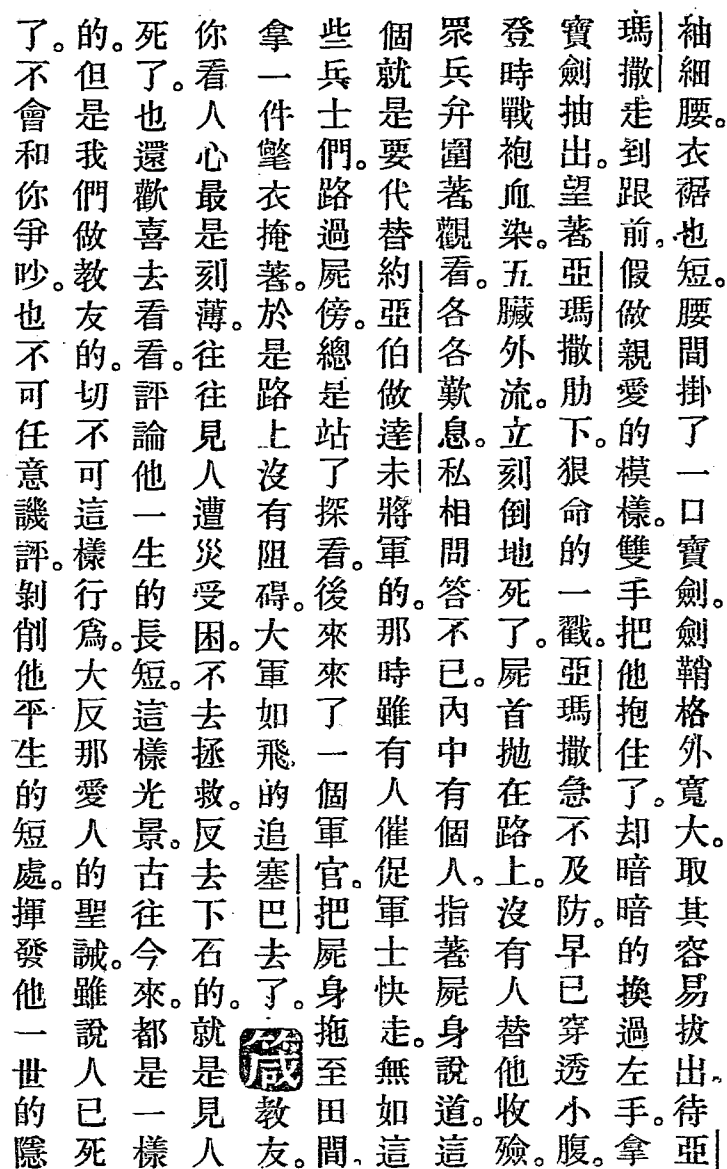 袖細腰。衣裾也短。腰間掛了一口寶劍。劍鞘格外寬大。取其容易拔出。待亞
瑪撒走到跟前。假做親愛的模樣。雙手把他抱住了。却暗暗的換過左手。拿
寶劍抽出。望著亞瑪撒肋下。狠命的一戳。亞瑪撒急不及防。早已穿透小腹。
登時戰袍血染。五臟外流。立刻倒地死了。屍首拋在路上。沒有人替他收殮。
眾兵弁圍著觀看。各各歎息。私相問答不已。內中有個人。指著屍身說道。這
個就是要代替約亞伯做達未將軍的。那時雖有人催促軍士快走。無如這
些兵士們。路過屍傍。總是站了探看。後來來了一個軍官。把屍身拖至田間。
拿一件氅衣掩著。於是路上沒有阻碍。大軍如飛的追塞巴去了。箴教友。
你看人心最是刻薄。往往見人遭災受困。不去拯救。反去下石的。就是見人
死了。也還歡喜去看看。評論他一生的長短。這樣光景。古往今來。都是一樣
的。但是我們做教友的。切不可這樣行爲。大反那愛人的聖誡。雖說人已死
了。不會和你爭吵。也不可任意譏評。剝削他平生的短處。揮發他一世的隱